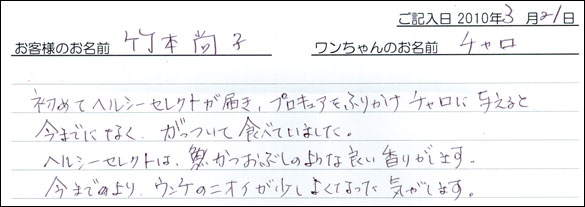 ご記入日 2010年3月21日
お客様のお名前 竹本尚子 ワンちゃんのお名前 チャロ
初めてヘルシーセレクトが届き、プロキュアをふりかけチャロに与えると
今までになく、がっついて食べていました。
ヘルシーセレクトは、魚かつおぶしのような良い香りがします。
今までのより、ウンケのニオイが少しよくなった気がします。